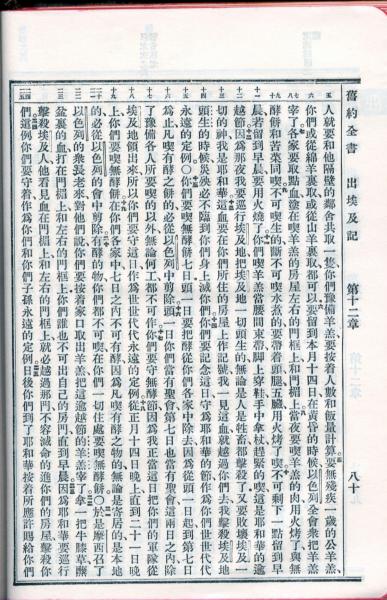 舊約全書 出埃及記 第十二章 八十
人就要和他隔壁的鄰舍共取一隻你們豫備羊羔要按着人數和飯量計算要無殘疾一歲的公羊羔
你們或從綿羊裏取或從山羊裏取都可以要留到本月十四日在黃昏的時候以色列全會衆把羊羔
宰了各家要取點血塗在喫羊羔的房屋左右的門框上和門楣上當夜要喫羊羔的肉用火烤了與無
酵餅和苦菜同喫不可喫生的斷不可喫水煑的要帶着頭腿五臟用火烤了喫不可剩下一點留到早
晨若留到早晨要用火燒了你們喫羊羔當腰間束帶脚上穿鞋手中拿杖趕緊的喫這是耶和華的逾
越節因爲那夜我要巡行埃及地把埃及地一切頭生的無論是人是牲畜都擊殺了又要敗壞埃及一
切的神我是耶和華這血要在你們所住的房屋上作記號我一見這血就越過你們去我擊殺埃及地
頭生的時候災殃必不臨到你們身上滅你們你們要記念這日守爲耶和華的節作爲你們世世代代
永遠的定例○你們要喫無酵餅七日頭一日要把酵從你們各家中除去因爲從頭一日起到第七日
爲止凡喫有酵之餅的必從以色列中剪除頭一日你們當有聖會第七日也當有聖會這兩日之內除
了豫備各人所要喫的以外無論何工都不可作你們要守無酵節因爲我正當這日把你們的軍隊從
埃及地領出來所以你們要守這日作爲世世代代永遠的定例從正月十四日晚上直到二十一日晚
上你們要喫無酵餅在你們各家中七日之內不可有酵因爲凡喫有酵之物的無論是寄居的是本地
的必從以色列的會中剪除有酵的物你們都不可喫在你們一切住處要喫無酵餅○於是摩西召了
以色列的衆長老來對他們說你們要按着家口取出羊羔把這逾越節的羊羔宰了拿一把牛膝草蘸
盆裏的血打在門楣上和左右的門框上你們誰也不可出自己的房門直到早晨因爲耶和華要巡行
擊殺埃及人他看見血在門楣上和左右的門框上就必越過那門不容滅命的進你們的房屋擊殺你
們這例你們要守着作爲你們和你們子孫永遠的定例日後你們到了耶和華按着所應許賜給你們